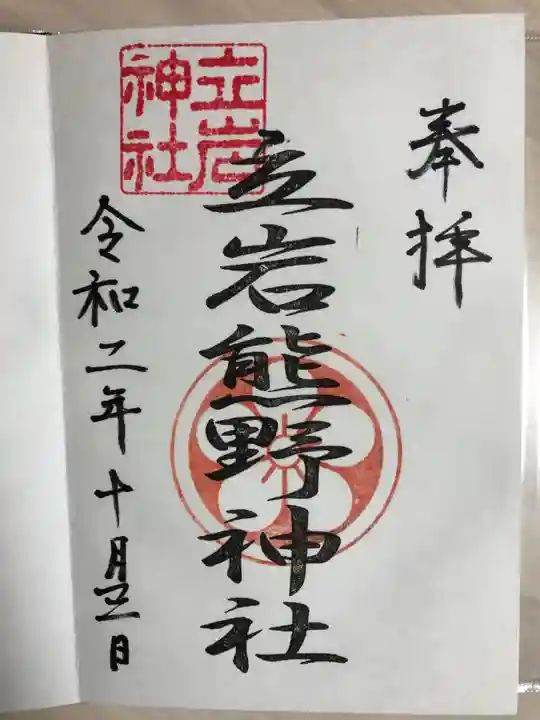 奉拝
立岩熊野神社
立岩神社
令和二年十月五日